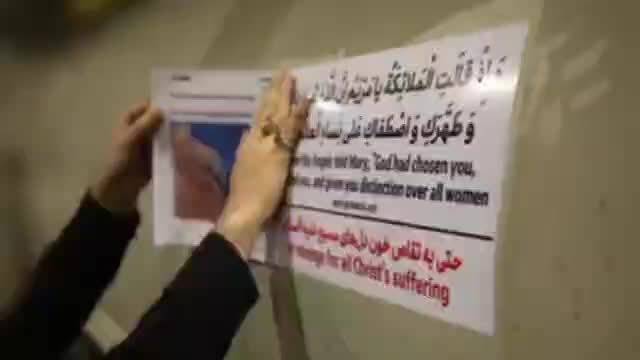 وَ إِذْ قَالَتِ الْمَلَائِكَةُ يَا مَرْيَمُ إِنَّ
وَ طَهَّرَكِ وَ اصْطَفَاكِ عَلَى نِسَاءِ
Angels told Mary, "God had chosen you,
you, and given you distinction over all women
حتی به تقاص خون دل‌های مسیح شده
revenge for all Christ's suffering